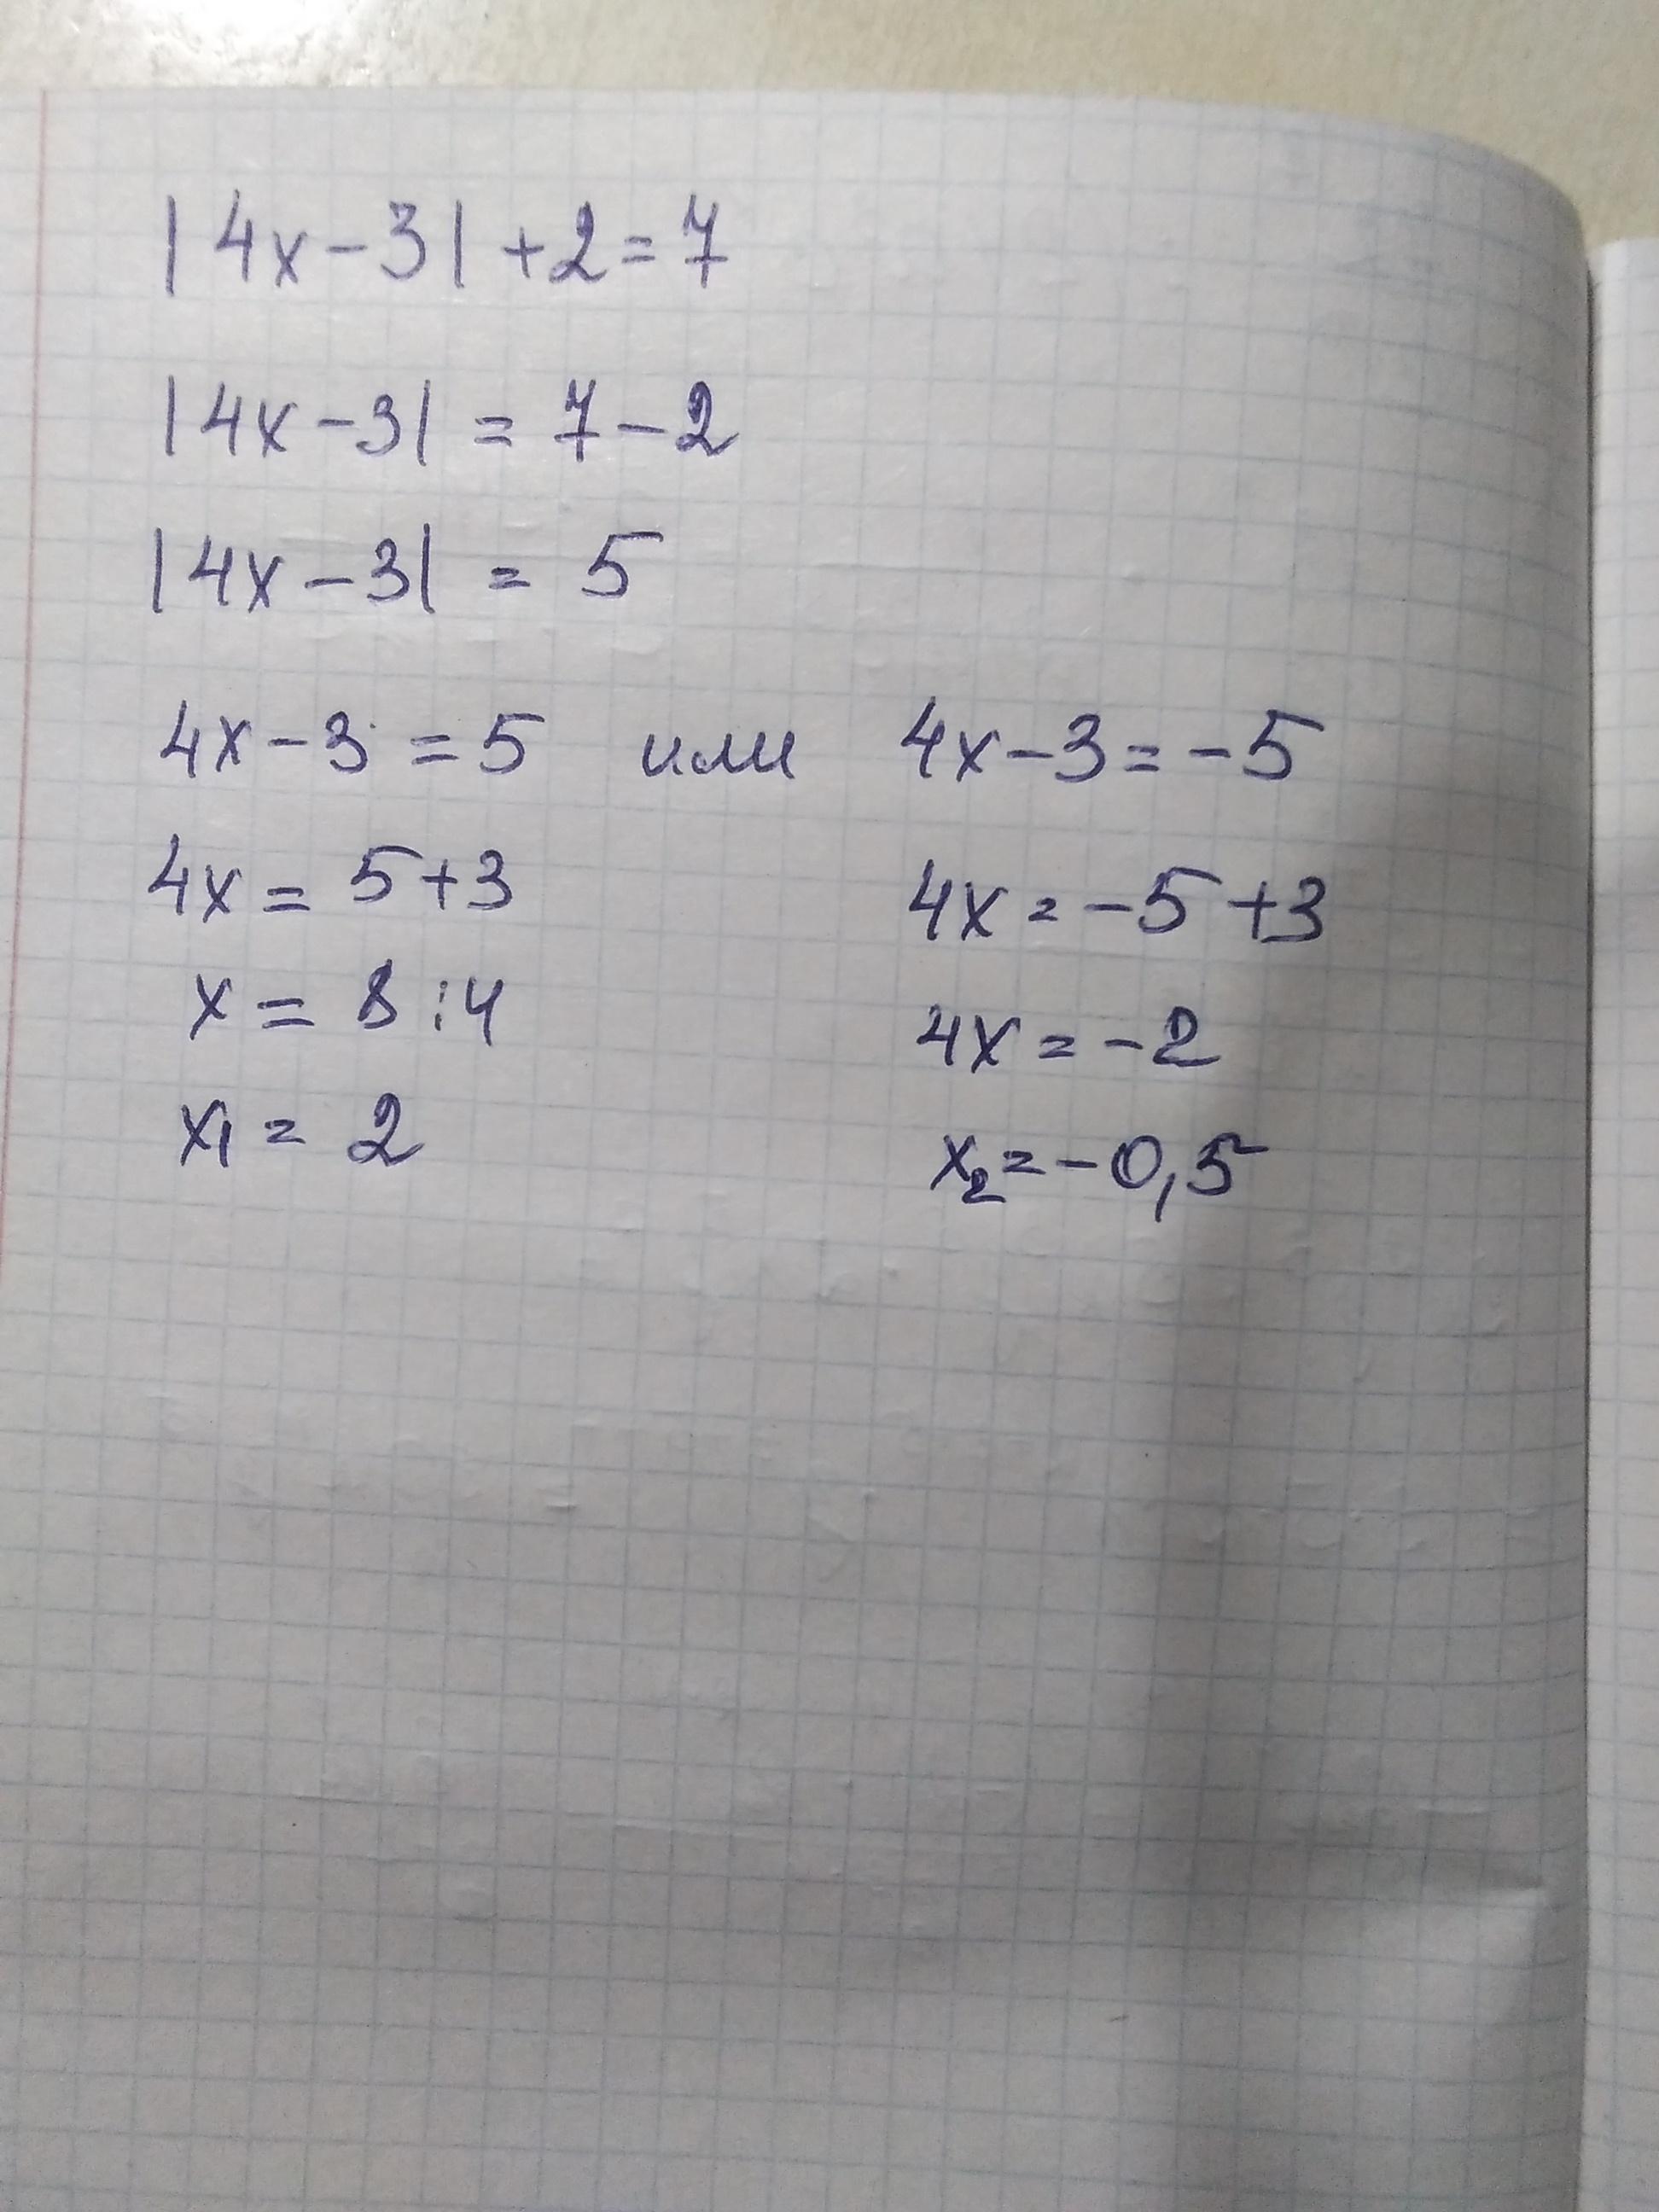 |4x-3|+2=7
|4x-3| = 7-2
|4x-3| = 5
4x-3=5 или 4x-3=-5
4x= 5+3 4x=-5+3
x= 8:4 4x=-2
x₁= 2 x₂=-0,5